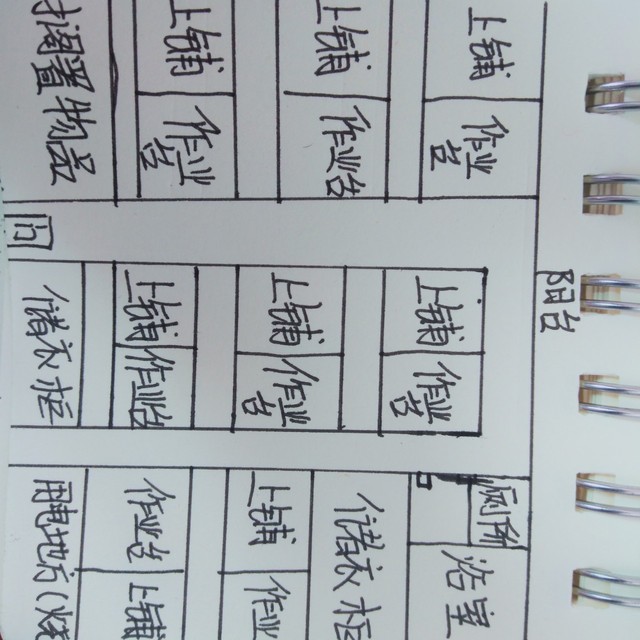 闲置物品
上铺
作业台
上铺
作业台
上铺
作业台
阳台
储衣柜
上铺
作业台
上铺
作业台
上铺
作业台
用电地方(烧
作业台
上铺
上铺
作业
储衣柜
厕所
浴室